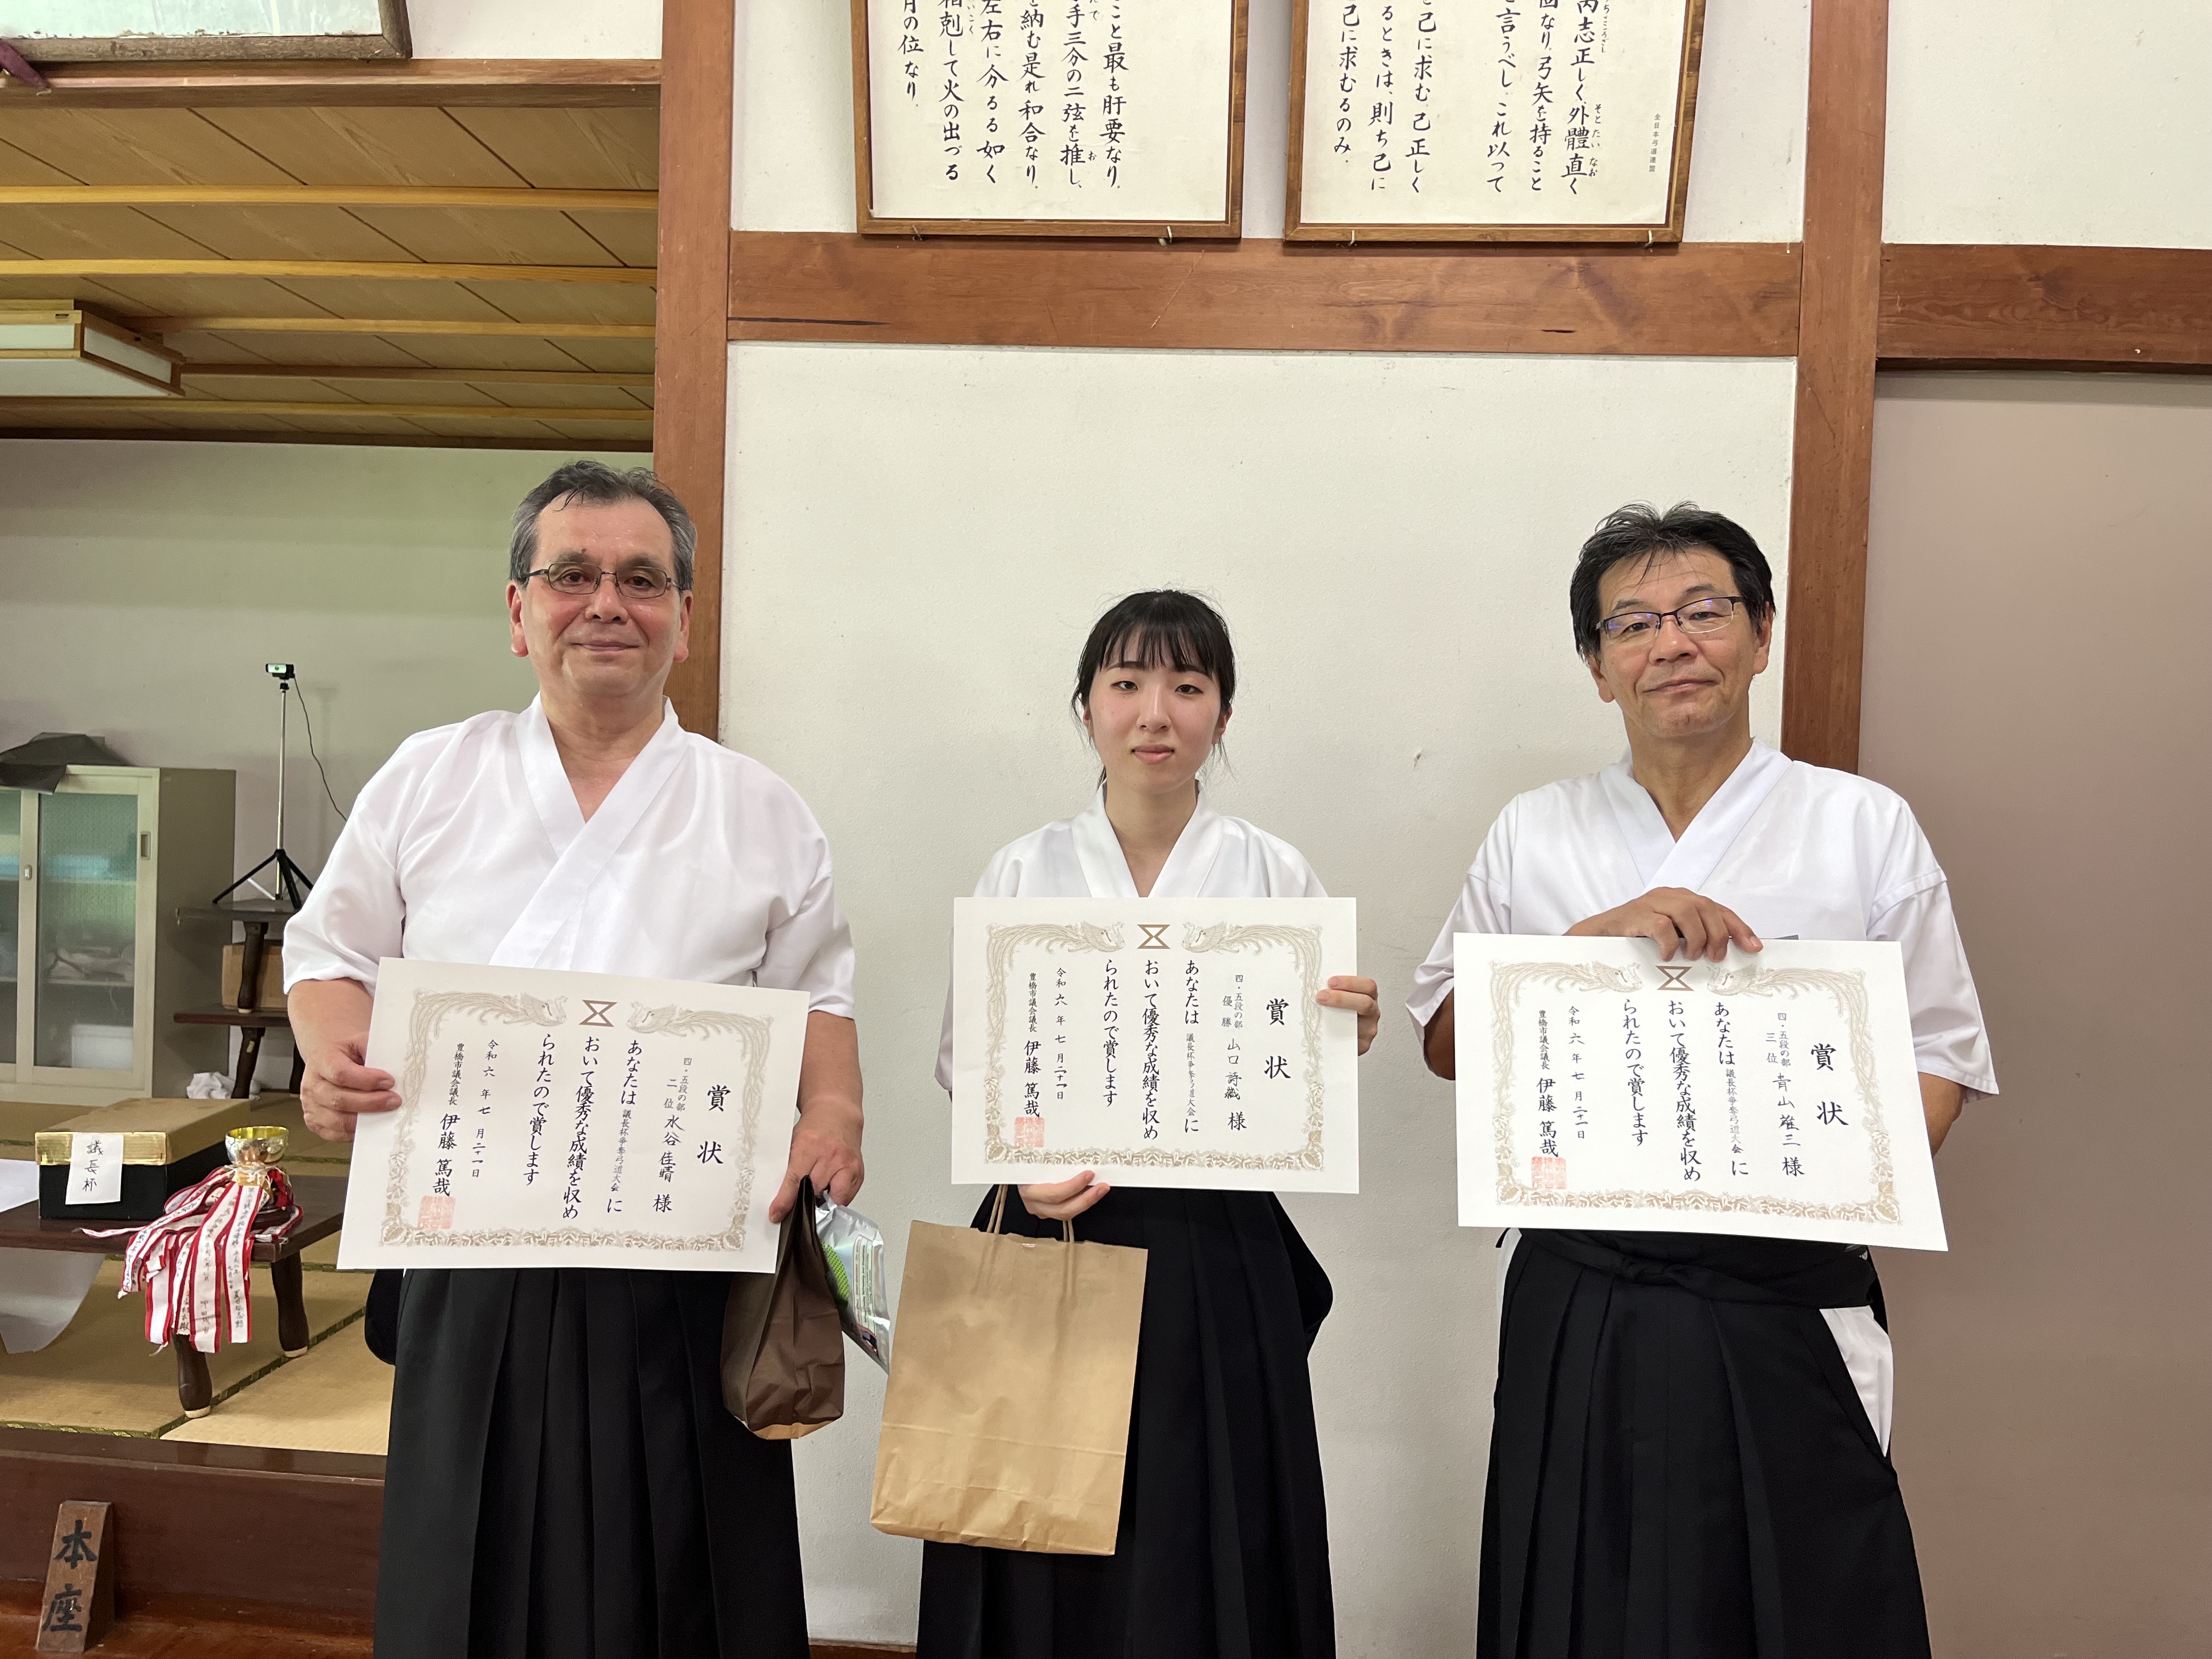 全日本弓道連盟
内志正しく、外體直く
固なり。弓矢を持ること
言うべし。これ以って
己に求む。己正しく
るときは、則ち己に
己に求むるのみ。
こと最も肝要なり。
手三分の二弦を推し、
納む是れ和合なり。
左右に分るる如く
相剋して火の出づる
月の位なり。
賞状
四・五段の部
二位 水谷佳晴 様
あなたは 議長杯争奪弓道大会に
おいて優秀な成績を収め
られたので賞します
令和六年七月二十一日
豊橋市議会議長 伊藤篤哉
賞状
四・五段の部
優勝 山口詩織 様
あなたは 議長杯争奪弓道大会に
おいて優秀な成績を収め
られたので賞します
令和六年七月二十一日
豊橋市議会議長 伊藤篤哉
賞状
四・五段の部
三位 青山雄三 様
あなたは 議長杯争奪弓道大会に
おいて優秀な成績を収め
られたので賞します
令和六年七月二十一日
豊橋市議会議長 伊藤篤哉
議長杯
本座